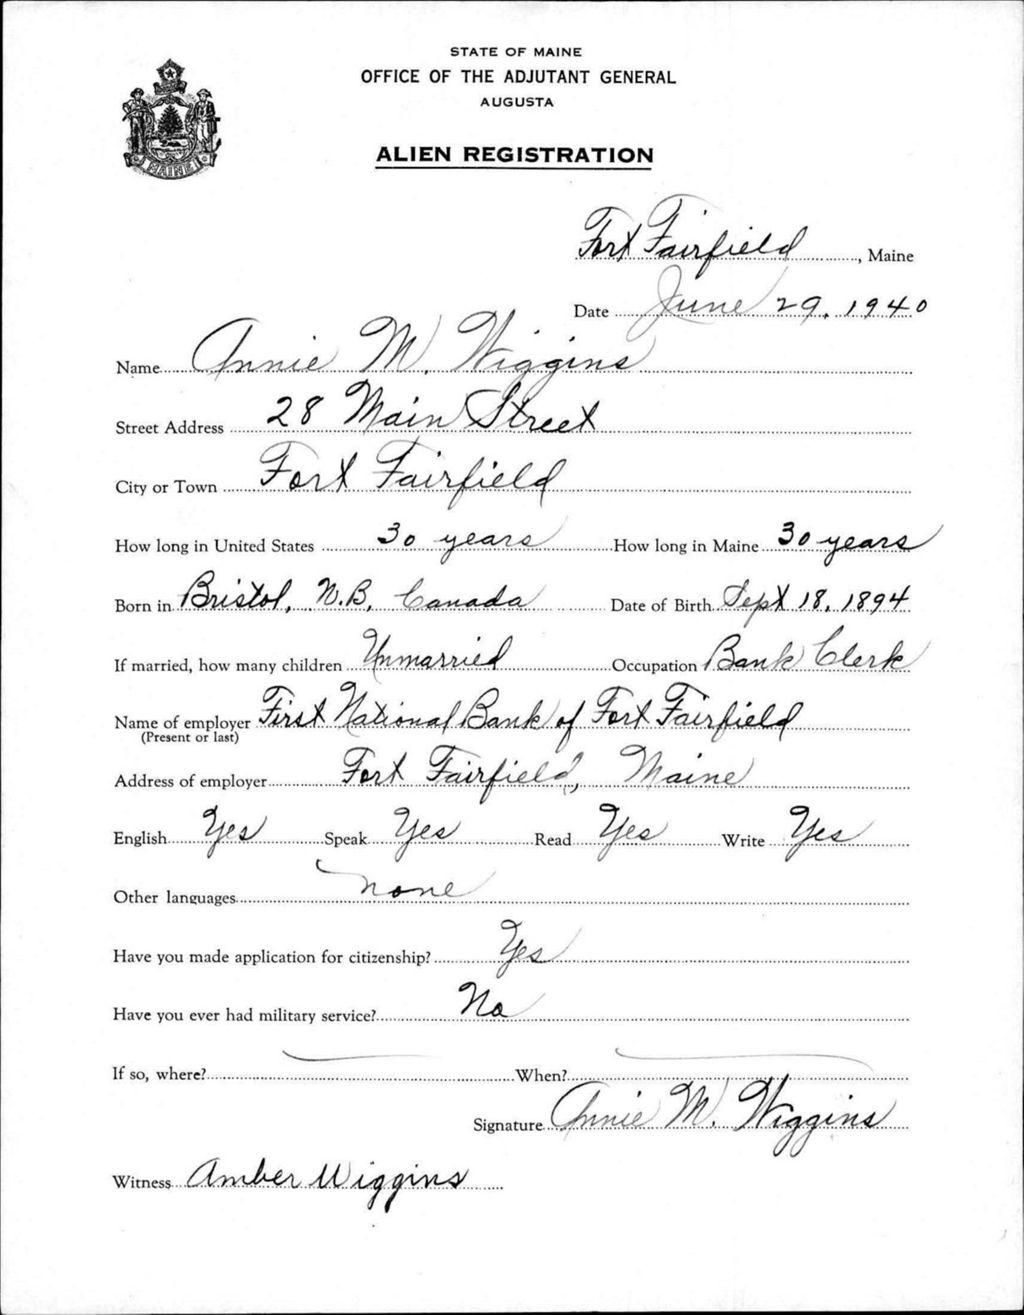 STATE OF MAINE
OFFICE OF THE ADJUTANT GENERAL
AUGUSTA
ALIEN REGISTRATION
MAINE
Fort Fairfield, Maine
Date June 29, 1940
Name Annie M. Wiggins
Street Address 28 Main Street
City or Town Fort Fairfield
How long in United States 30 years How long in Maine 30 years
Born in Bristol, N.B. Canada Date of Birth Sept 18, 1894
If married, how many children Unmarried Occupation Bank Clerk
Name of employer First National Bank of Fort Fairfield
(Present or last)
Address of employer Fort Fairfield, Maine
English Yes Speak Yes Read Yes Write Yes
Other languages none
Have you made application for citizenship? Yes
Have you ever had military service? No
If so, where? When?
Signature Annie M. Wiggins
Witness Amber Wiggins